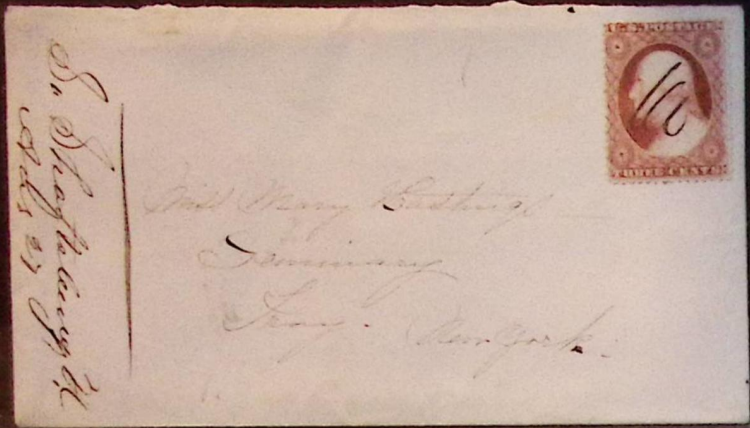 So Shaftsbury Vt
27
U.S. POSTAGE
THREE CENTS
Miss Mary Hastings
Seminary
Troy. New York.